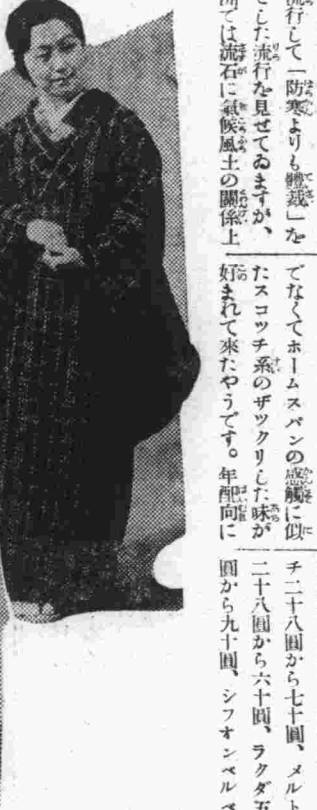 流行して「防寒よりも體裁」を
した流行を見せてゐますが、
では流石に氣候風土の關係上
でなくてホームスパンの感觸に似
たスコツチ系のザツクリした味が
好まれて來たやうです。年配向に
チ二十八圓から七十圓、メルト
二十八圓から六十圓、ラクダ五
圓から九十圓、シフオンベルベ